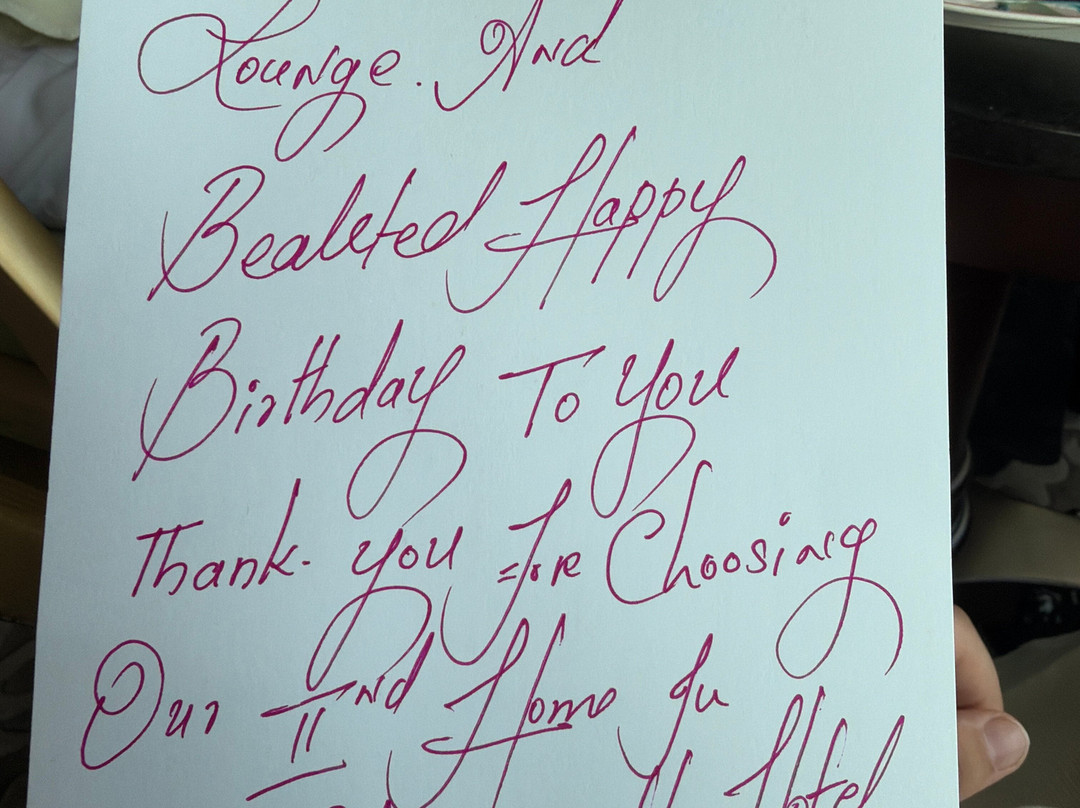 Lounge. And
Bealeted Happy
Birthday To You
Thank. you For Choosing
Our IInd Home In
Hotel